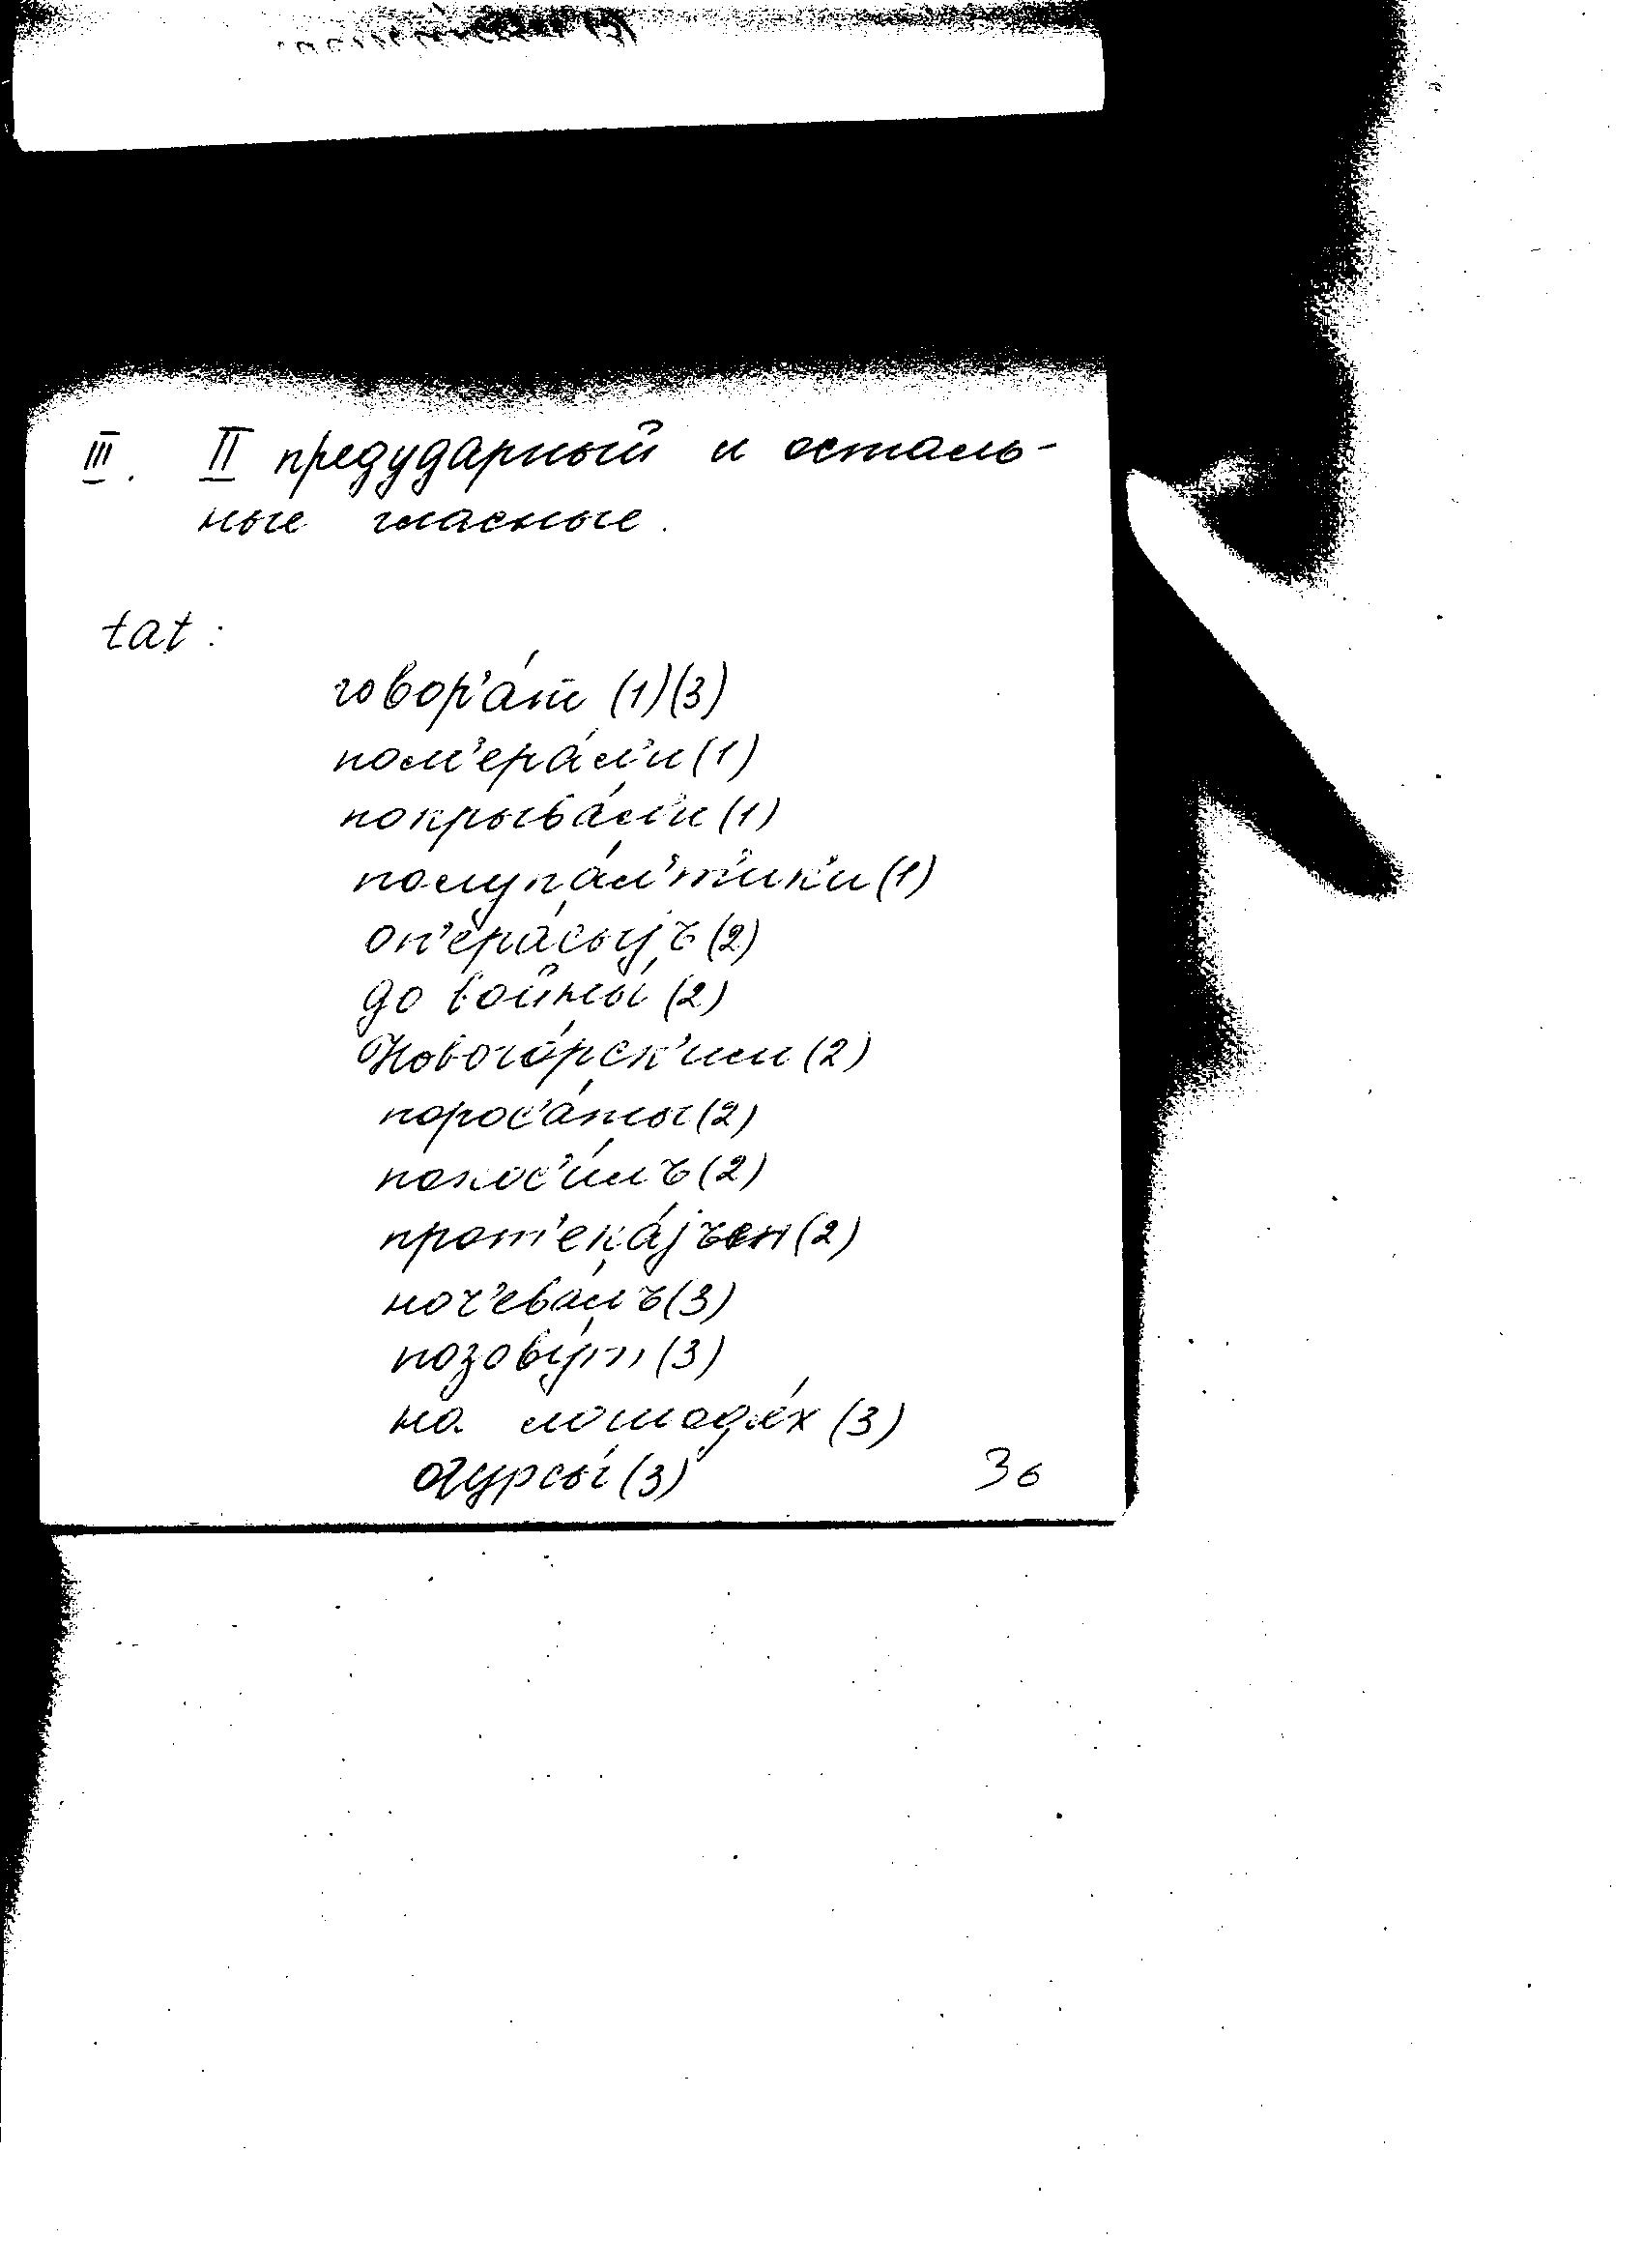 III. II предударный и осталь-
ные гласные.
tat:
говор'а́т (1)(3)
пом'ера́л'и (1)
покрыва́л'и (1)
полупа́л'т'ик'и (1)
оп'ера́сыjъ (2)
до войны́ (2)
Нового́рск'им (2)
порос'а́ты (2)
понос'и́лъ (2)
прот'ека́jъ (2)
ноч'ева́лъ (3)
позову́т (3)
на лошадя́х (3)
огурсы́ (3)
36